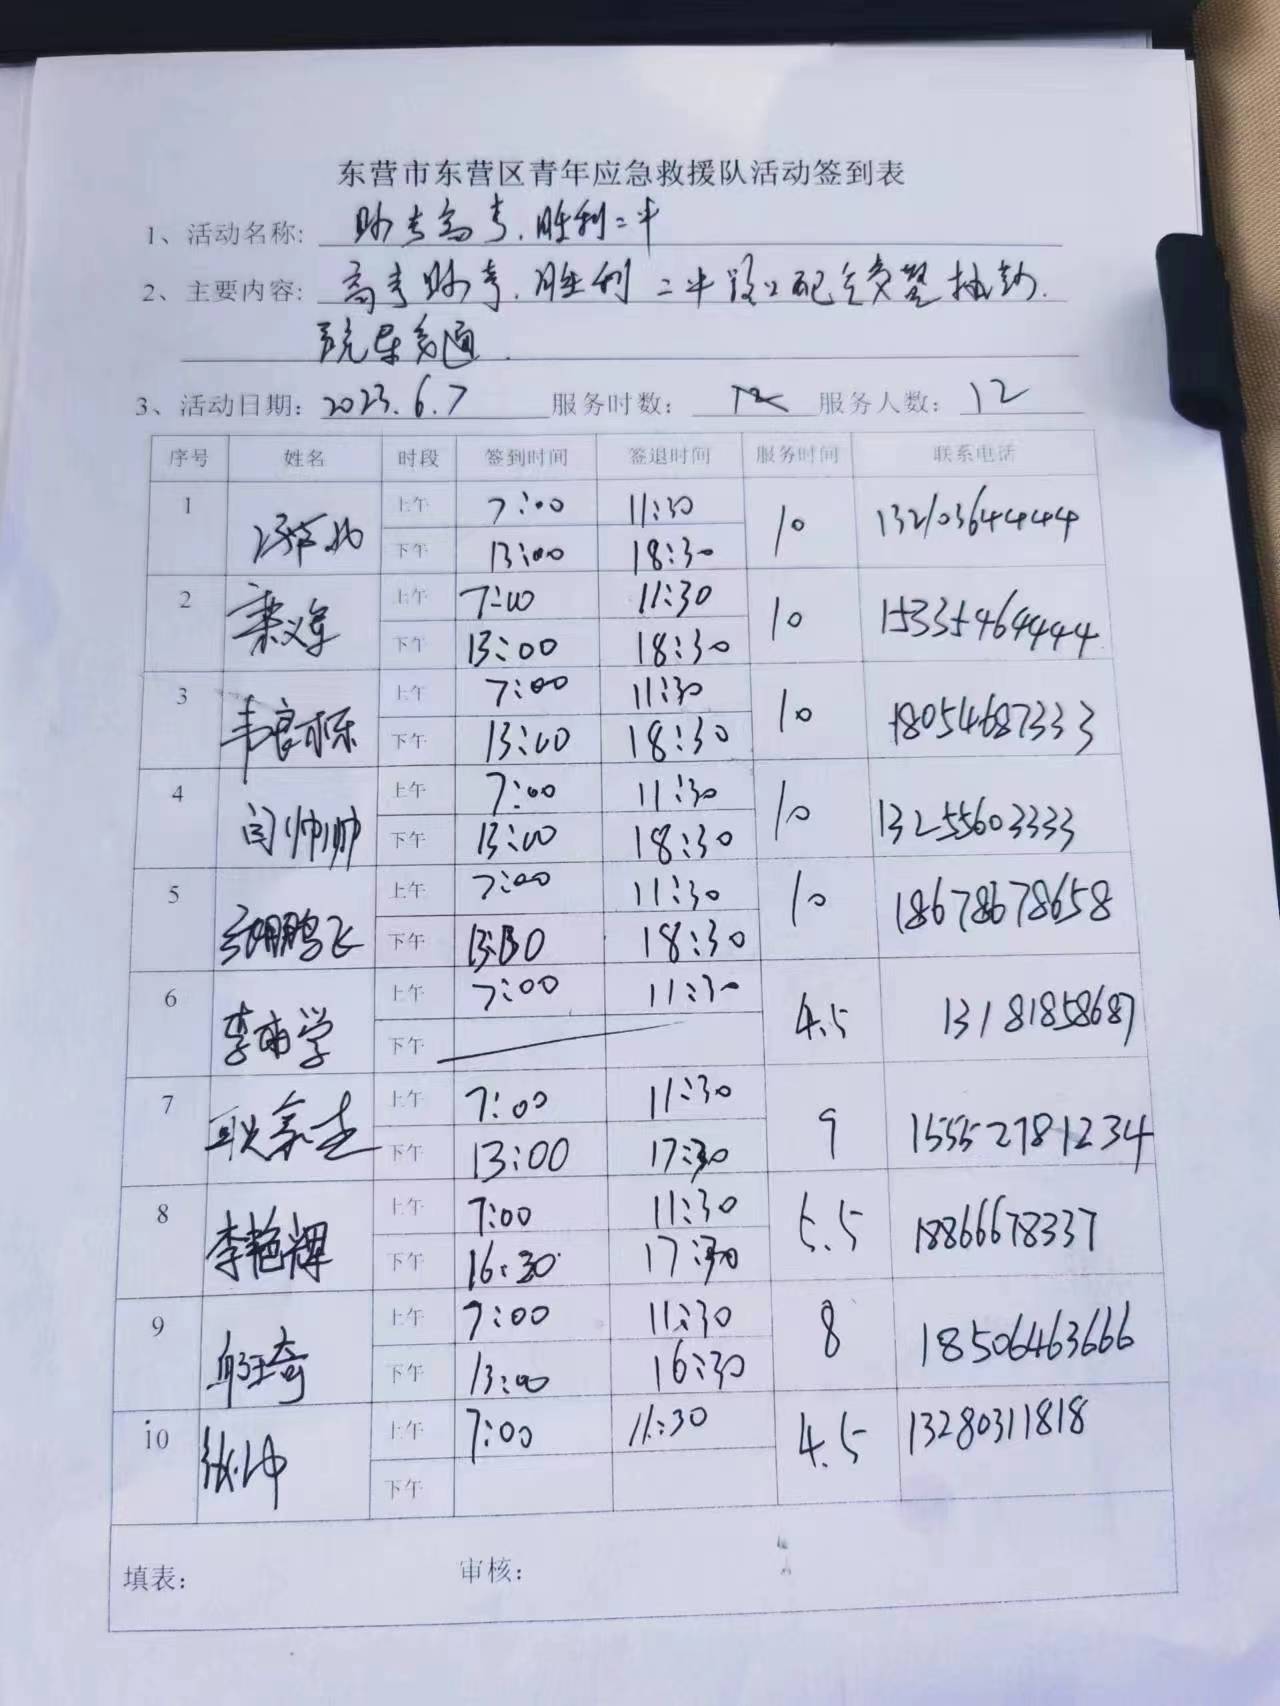 东营市东营区青年应急救援队活动签到表
1、活动名称: 助考高考,胜利二中
2、主要内容: 高考助考,胜利二中路口配合交警执勤,
疏导交通.
3、活动日期: 2023.6.7 服务时数: 服务人数: 12
序号 姓名 时段 签到时间 签退时间 服务时间 联系电话
1 上午 7:00 11:30 10 13210364444
下午 13:00 18:30
2 上午 7:00 11:30 10 15335464444
下午 13:00 18:30
3 韦良栋 上午 7:00 11:30 10 18054687333
下午 13:00 18:30
4 闫帅帅 上午 7:00 11:30 10 13255603333
下午 13:00 18:30
5 鹏飞 上午 7:00 11:30 10 18678678658
下午 18:30
6 李 学 上午 7:00 11:30 4.5 13181858687
下午
7 耿 上午 7:00 11:30 9 15552781234
下午 13:00 17:30
8 李艳辉 上午 7:00 11:30 5.5 18866678337
下午 16:30 17:30
9 奇 上午 7:00 11:30 8 18506463666
下午 13:00 16:30
10 张 上午 7:00 11:30 4.5 13280311818
下午
填表: 审核: